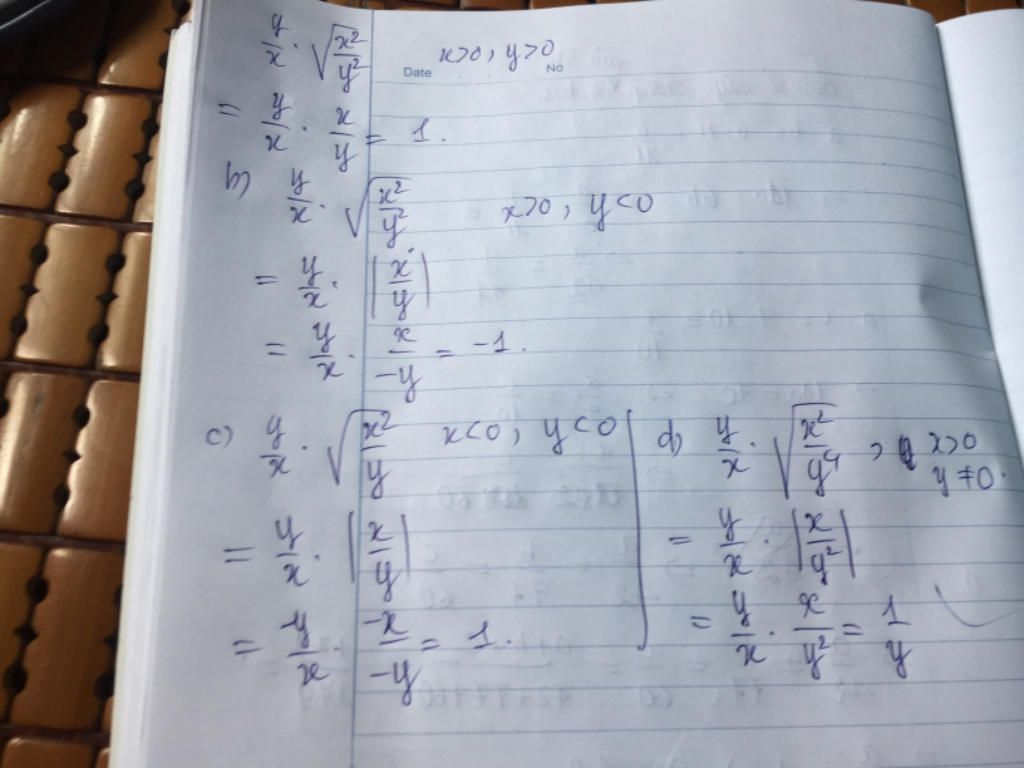 y/x · √(x²/y²) x>0, y>0
Date No
= y/x · x/y = 1.
b) y/x · √(x²/y²) x>0, y<0
= y/x · |x/y|
= y/x · x/-y = -1.
c) y/x · √(x²/y) x<0, y<0
= y/x · |x/y|
= y/x · -x/-y = 1.
d) y/x · √(x²/y⁴), x>0
y≠0.
= y/x · |x/y²|
= y/x · x/y² = 1/y